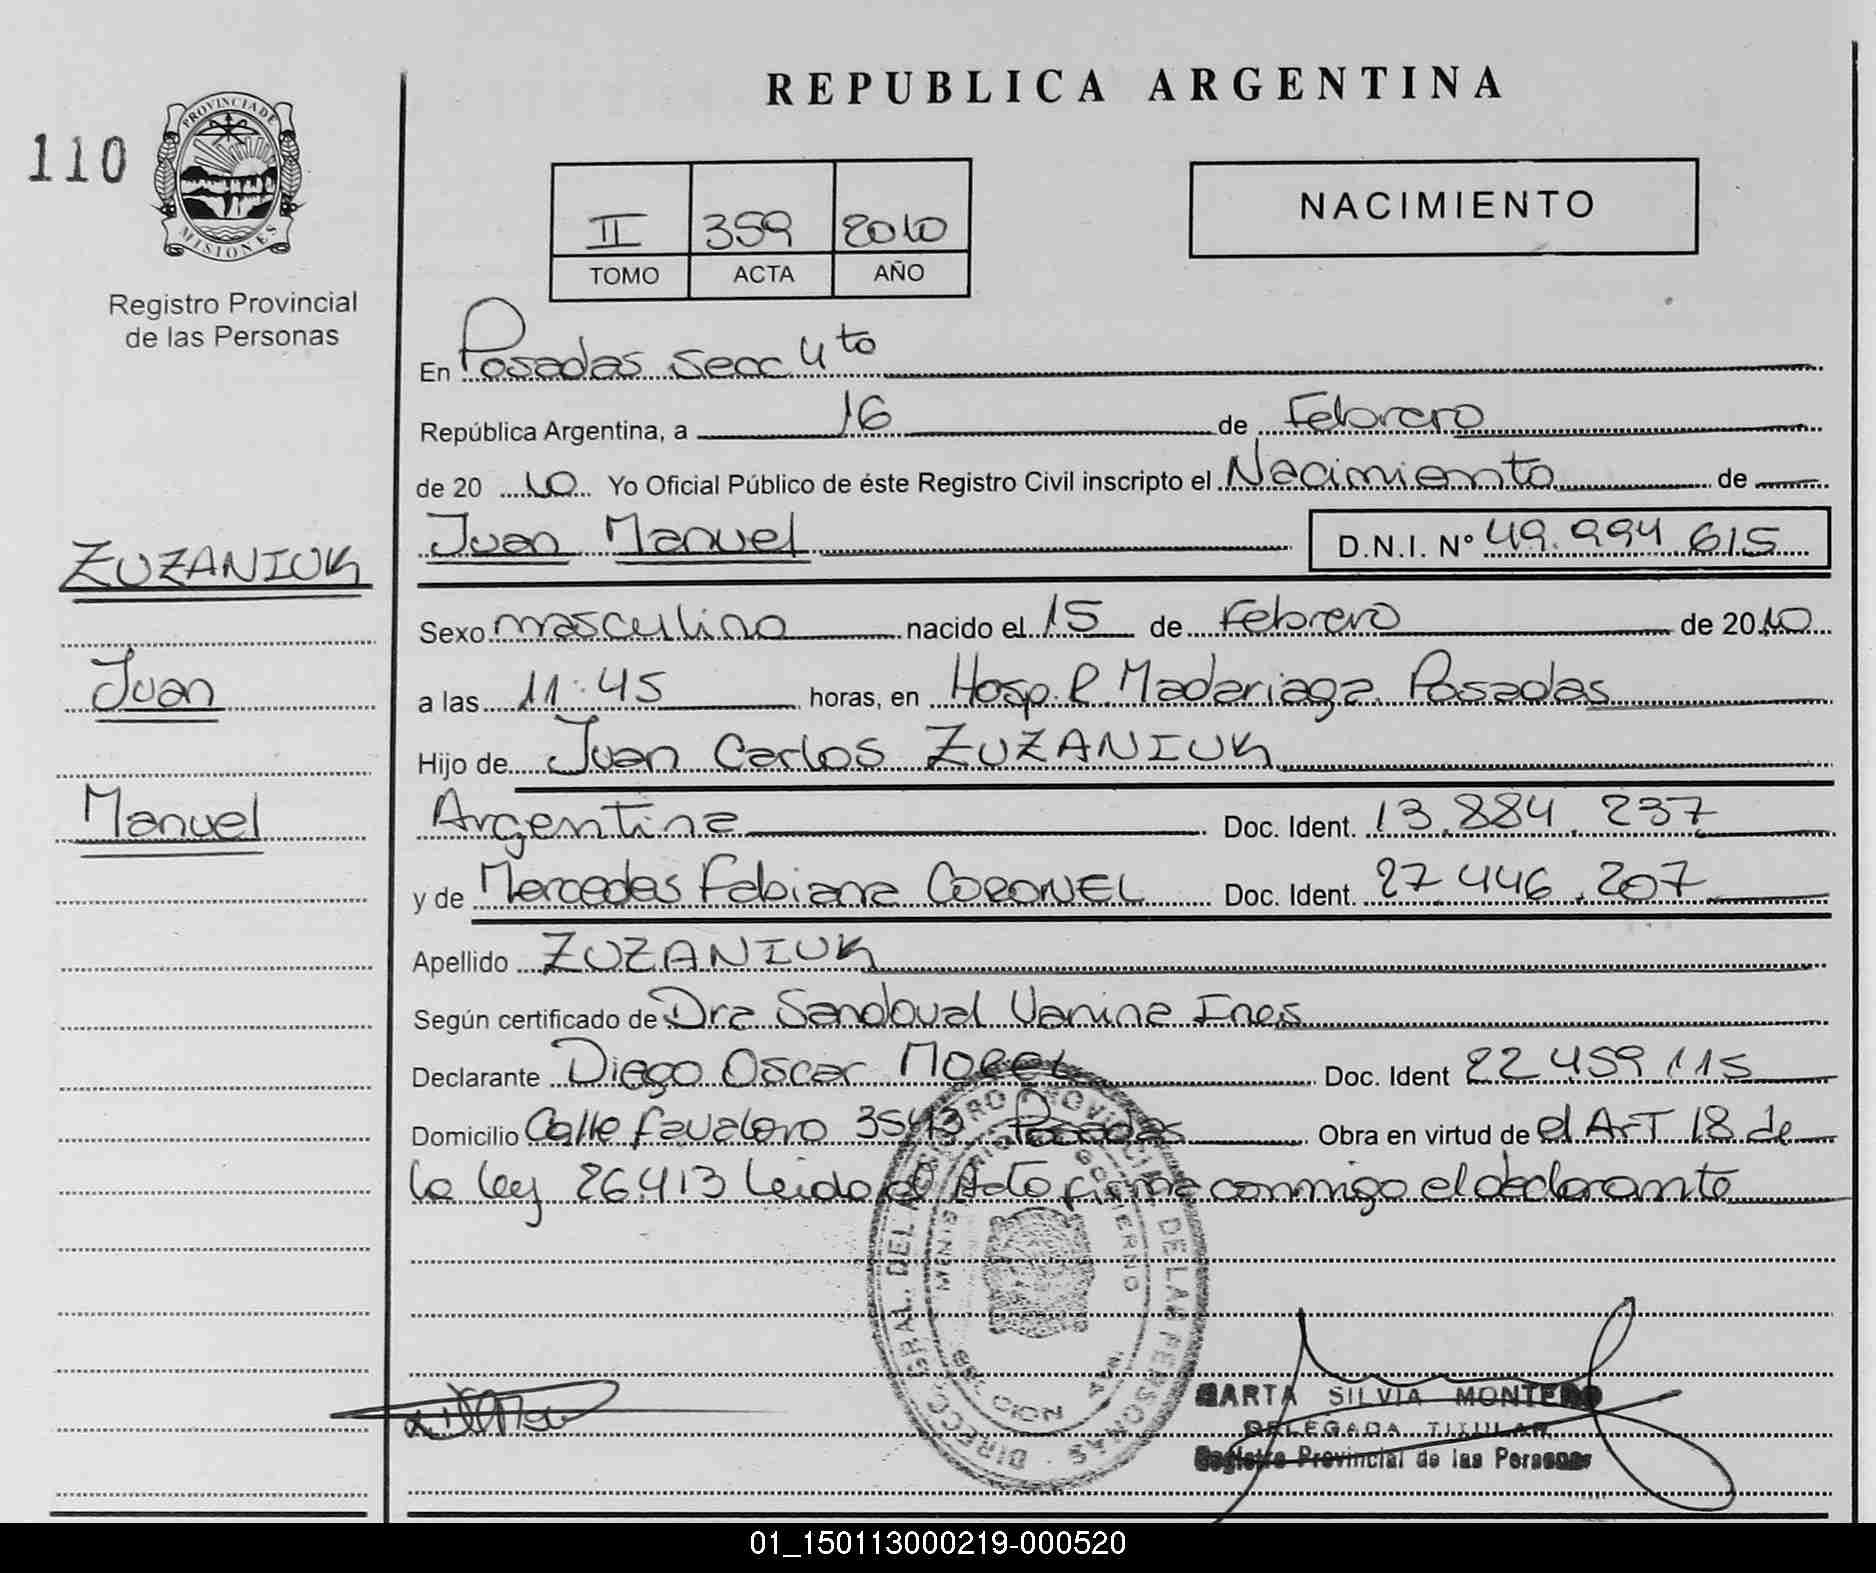 REPUBLICA ARGENTINA
110
PROVINCIA DE
MISIONES
Registro Provincial
de las Personas
II 359 2010
TOMO ACTA AÑO
NACIMIENTO
En Posadas Secc 4to
República Argentina, a 16 de Febrero
de 20 10 Yo Oficial Público de éste Registro Civil inscripto el Nacimiento de
Juan Manuel D.N.I. N° 49.994.615
ZUZANIUK
Juan
Manuel
Sexo masculino nacido el 15 de Febrero de 2010
a las 11:45 horas, en Hosp. R. Madariaga. Posadas
Hijo de Juan Carlos ZUZANIUK
Argentina Doc. Ident. 13.884.237
y de Mercedes Fabiana CORONEL Doc. Ident. 27.446.207
Apellido ZUZANIUK
Según certificado de Dra Sandoval Vanina Ines
Declarante Diego Oscar MOREL Doc. Ident 22.459.115
Domicilio Calle Favaloro 3543 Posadas Obra en virtud de el Art 18 de
la ley 26.413 Leida el Acta firma conmigo el declarante
DEL REGISTRO PROVINCIAL DE LAS PERSONAS
GOBIERNO
MARTA SILVIA MONTERO
DELEGADA TITULAR
Registro Provincial de las Personas
01_150113000219-000520